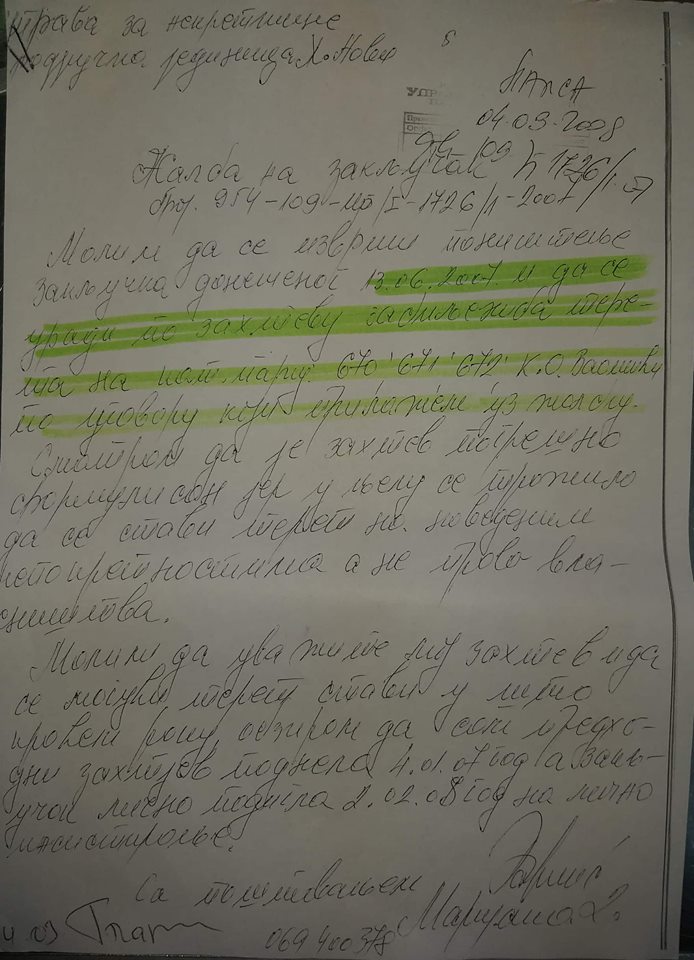 права за некретнине
подручна јединица Х. Нови
04.03.2008
Жалба на закључак
Број. 954-109-УП/I-1726/1-2007
Молим да се изврши поништење
закључка донешеног 13.06.2007. и да се
уради по захтеву забиљежба тере-
та на кат. парц. 670, 671, 672 К.О.
по уговору који прилажем уз жалбу.
Сматрам да је захтев погрешно
формулисан јер у њему се тражило
да се стави терет на наведеним
непокретностима а не право вла-
ништва.
Молим да уважите мој захтев и да
се терет стави у
року, обзиром да сам предхо-
дни захтјев поднела 4.01.07 год а Закљ-
учак лично подигла 2.02.08 год на лично
инсистирање.
Са поштовањем
069 400 378